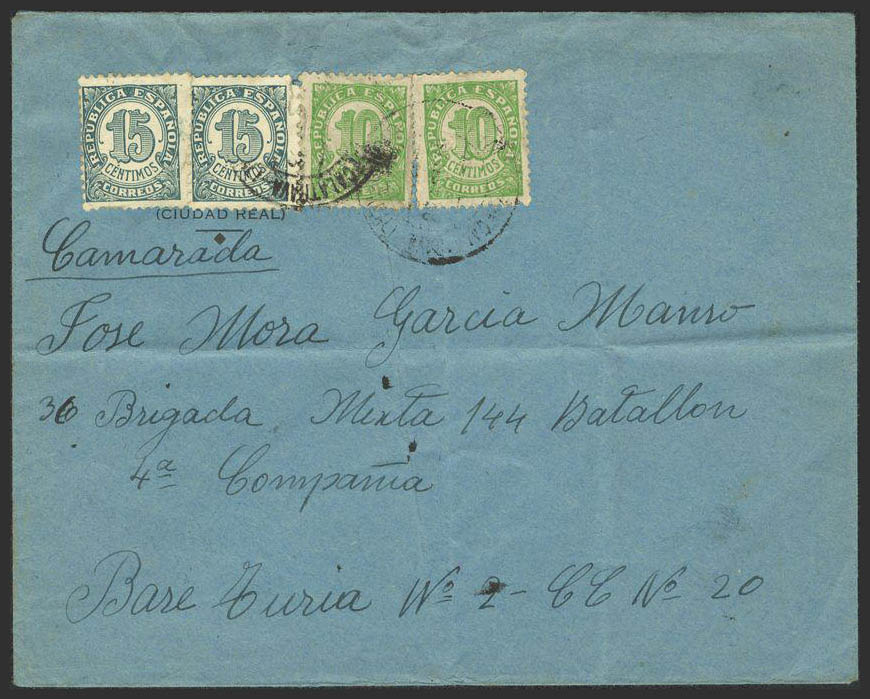 REPUBLICA ESPAÑOLA 15 CENTIMOS CORREOS
REPUBLICA ESPAÑOLA 15 CENTIMOS CORREOS
REPUBLICA ESPAÑOLA 10
REPUBLICA ESPAÑOLA 10 CENTIMOS CORREOS
(CIUDAD REAL)
Camarada
Jose Mora Garcia Manso
36 Brigada Mixta 144 Batallon
4ª Compañia
Base Turia Nº 2 - CC Nº 20